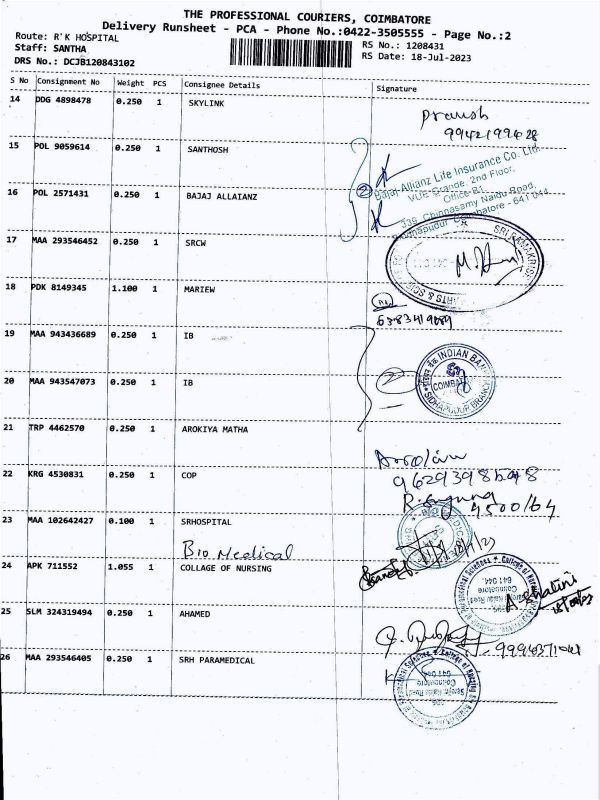 THE PROFESSIONAL COURIERS, COIMBATORE
Delivery Runsheet - PCA - Phone No.:0422-3505555 - Page No.:2
Route: R'K HOSPITAL
RS No.: 1208431
Staff: SANTHA
RS Date: 18-Jul-2023
DRS No.: DCJB120843102
S No Consignment No Weight PCS Consignee Details Signature
14 DDG 4898478 0.250 1 SKYLINK
15 POL 9059614 0.250 1 SANTHOSH
Bajaj Allianz Life Insurance Co. Ltd.
VUE Grande, 2nd Floor,
Office B1,
339, Chinnasamy Naidu Road,
Coimbatore - 641 044
16 POL 2571431 0.250 1 BAJAJ ALLAIANZ
17 MAA 293546452 0.250 1 SRCW
18 PDK 8149345 1.100 1 MARIEW
19 MAA 943436689 0.250 1 IB
INDIAN BANK
COIMBATORE
SIDHAPUDUR BRANCH
20 MAA 943547073 0.250 1 IB
2
21 TRP 4462570 0.250 1 AROKIYA MATHA
22 KRG 4530831 0.250 1 COP
23 MAA 102642427 0.100 1 SRHOSPITAL
Bio Medical
24 APK 711552 1.055 1 COLLAGE OF NURSING
25 SLM 324319494 0.250 1 AHAMED
26 MAA 293546405 0.250 1 SRH PARAMEDICAL